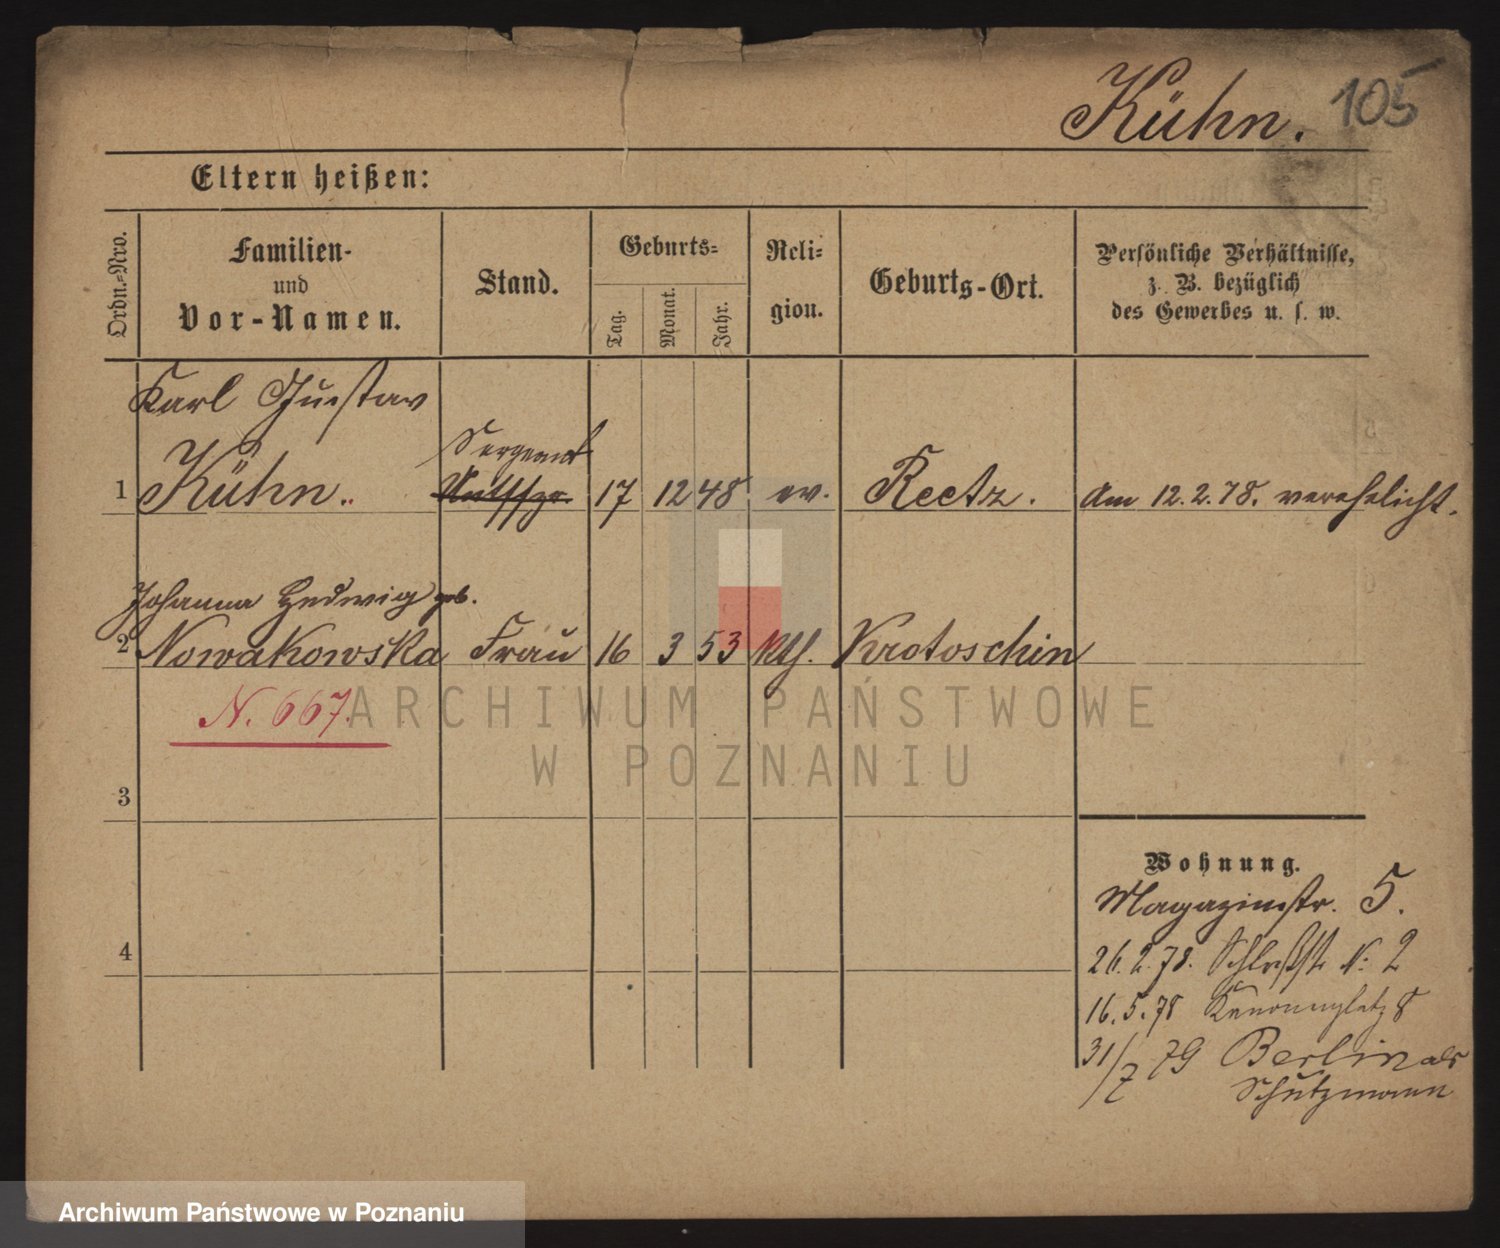 Kühn. 105
Eltern heißen:
Ordn.-Nro.
Familien-
und
Vor-Namen.
Stand.
Geburts-
Tag.
Monat.
Jahr.
Reli-
gion.
Geburts-Ort.
Persönliche Verhältnisse,
z. B. bezüglich
des Gewerbes u. s. w.
Karl Gustav
Sergeant
1 Kühn. 17 12 48 ev. Reetz. Am 12.2.78. verehelicht.
Johanna Hedwig geb.
2 Nowakowska Frau 16 3 53 kth. Krotoschin
N. 667.
ARCHIWUM PAŃSTWOWE
W POZNANIU
3
4
Wohnung.
Magazinstr. 5.
26.2.78. Schloßstr N: 2
16.5.78 Kanonenplatz 8
31/7 79 Berlin als
Schutzmann
Archiwum Państwowe w Poznaniu